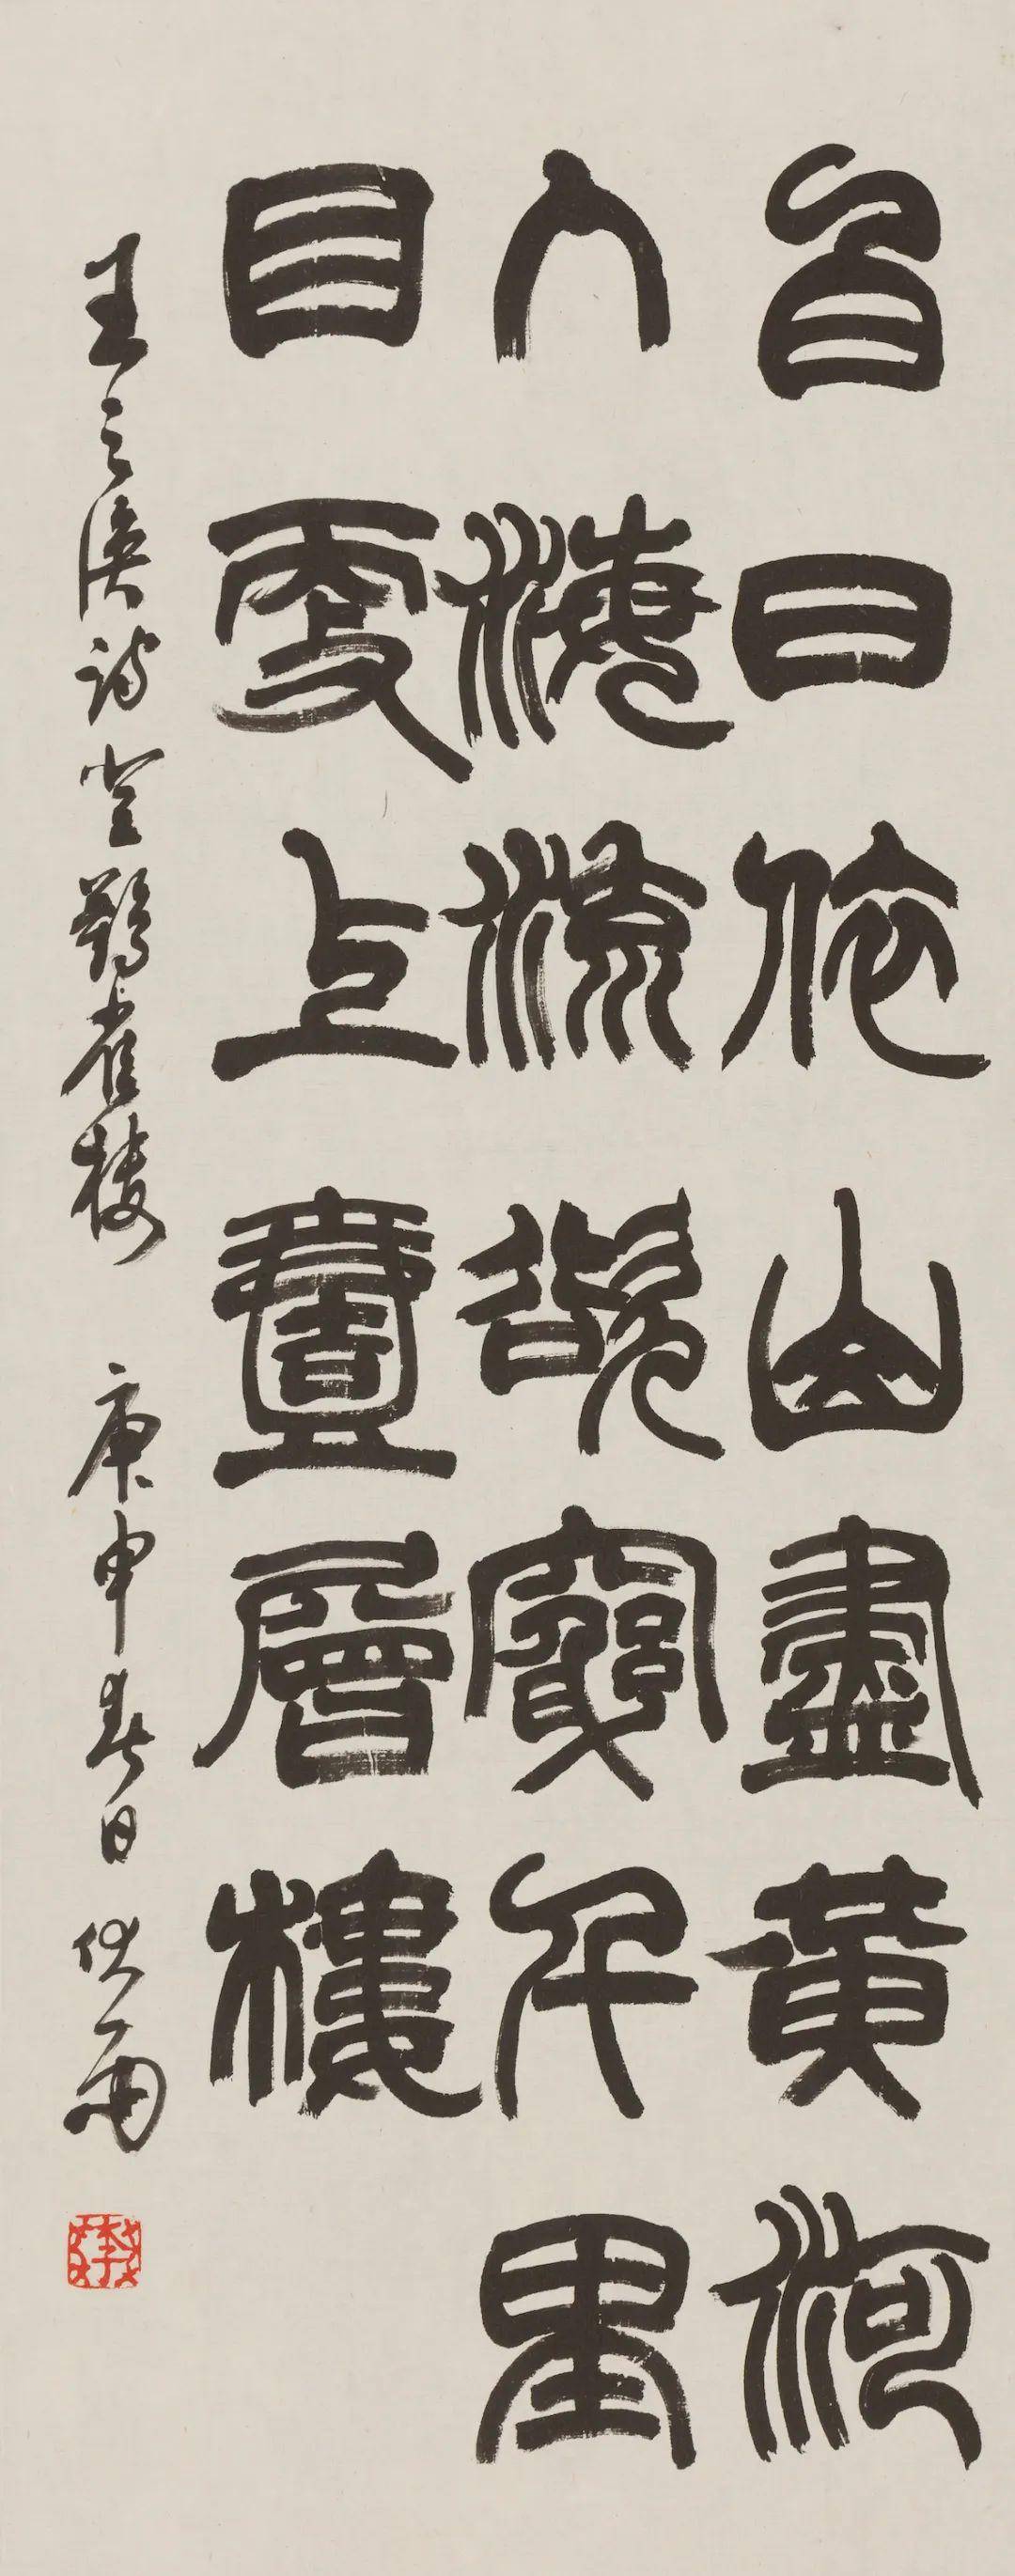 白日依山盡黃河
入海流欲窮千里
目更上壹層樓
王之渙詩登鸛雀樓 庚申春日 伏雨